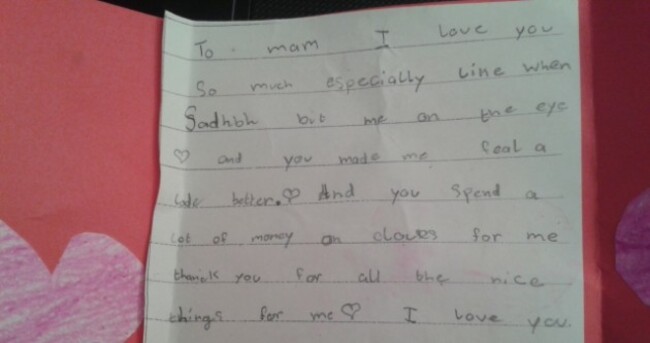 To mam I love you
So much especially Line when
Sadhbh but me on the eye
♡ and you made me feal a
lode better.♡ And you spend a
lot of money on cloves for me
thanck you for all the nice
things for me♡ I love you.